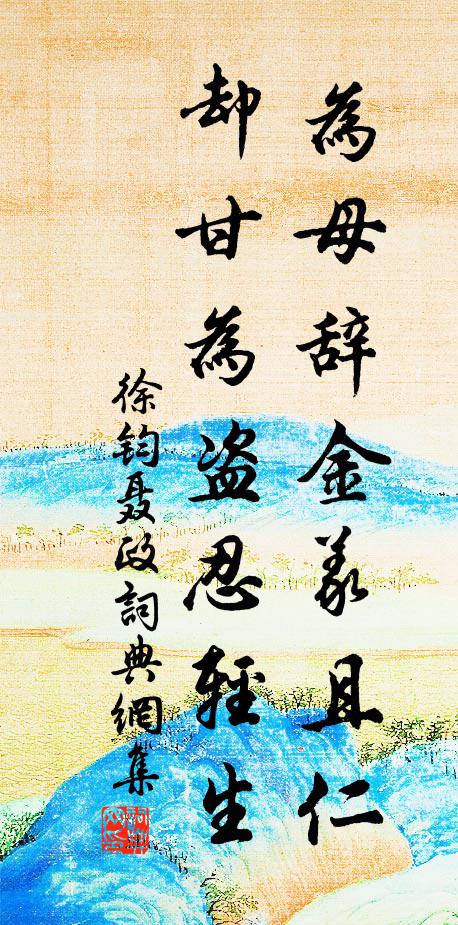 為母辞金義且仁
却甘為盗忍輕生
徐鈞聂政詞典網集